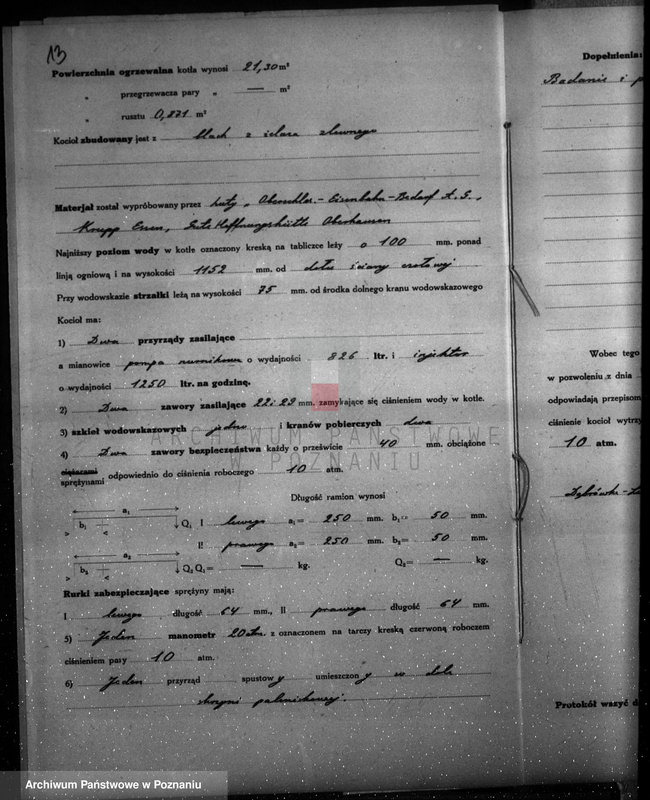 13
Powierzchnia ogrzewalna kotła wynosi 21,30 m²
„ przegrzewacza pary „ — m²
„ rusztu 0,871 m²
Kocioł zbudowany jest z blach z żelaza zlewnego
Materjał został wypróbowany przez huty „Oberschles.-Eisenbahn-Bedarf A.G.,
Krupp Essen, Gute Hoffnungshütte Oberhausen
Najniższy poziom wody w kotle oznaczony kreską na tabliczce leży o 100 mm. ponad
linją ogniową i na wysokości 1152 mm. od dołu ściany czołowej
Przy wodowskazie strzałki leżą na wysokości 75 mm. od środka dolnego kranu wodowskazowego
Kocioł ma:
1) Dwa przyrządy zasilające
a mianowicie pompa nurnikowa o wydajności 826 ltr. i injektor
o wydajności 1250 ltr. na godzinę.
2) Dwa zawory zasilające 22 i 29 mm. zamykające się ciśnieniem wody w kotle.
3) szkieł wodowskazowych jedno i kranów pobierczych dwa
4) Dwa zawory bezpieczeństwa każdy o prześwicie 40 mm. obciążone
ciężarami
sprężynami odpowiednio do ciśnienia roboczego 10 atm.
Długość ramion wynosi
a₁
b₁ Q₁ I lewego a₁= 250 mm. b₁= 50 mm.
II prawego a₂= 250 mm. b₂= 50 mm.
a₂
b₂ Q₂ Q₁= — kg. Q₂= — kg.
Rurki zabezpieczające sprężyny mają:
I lewego długość 64 mm., II prawego długość 64 mm.
5) Jeden manometr 20 atm. z oznaczonem na tarczy kreską czerwoną roboczem
ciśnieniem pary 10 atm.
6) Jeden przyrząd spustowy umieszczony w dole
skrzyni paleniskowej.
Dopełnienia:
Badanie i p
Wobec tego
w pozwoleniu z dnia
odpowiadają przepisom
ciśnienie kocioł wytrzy
10 atm.
Protokół wszyć d
ARCHIWUM PAŃSTWOWE
POZNANIU
Archiwum Państwowe w Poznaniu